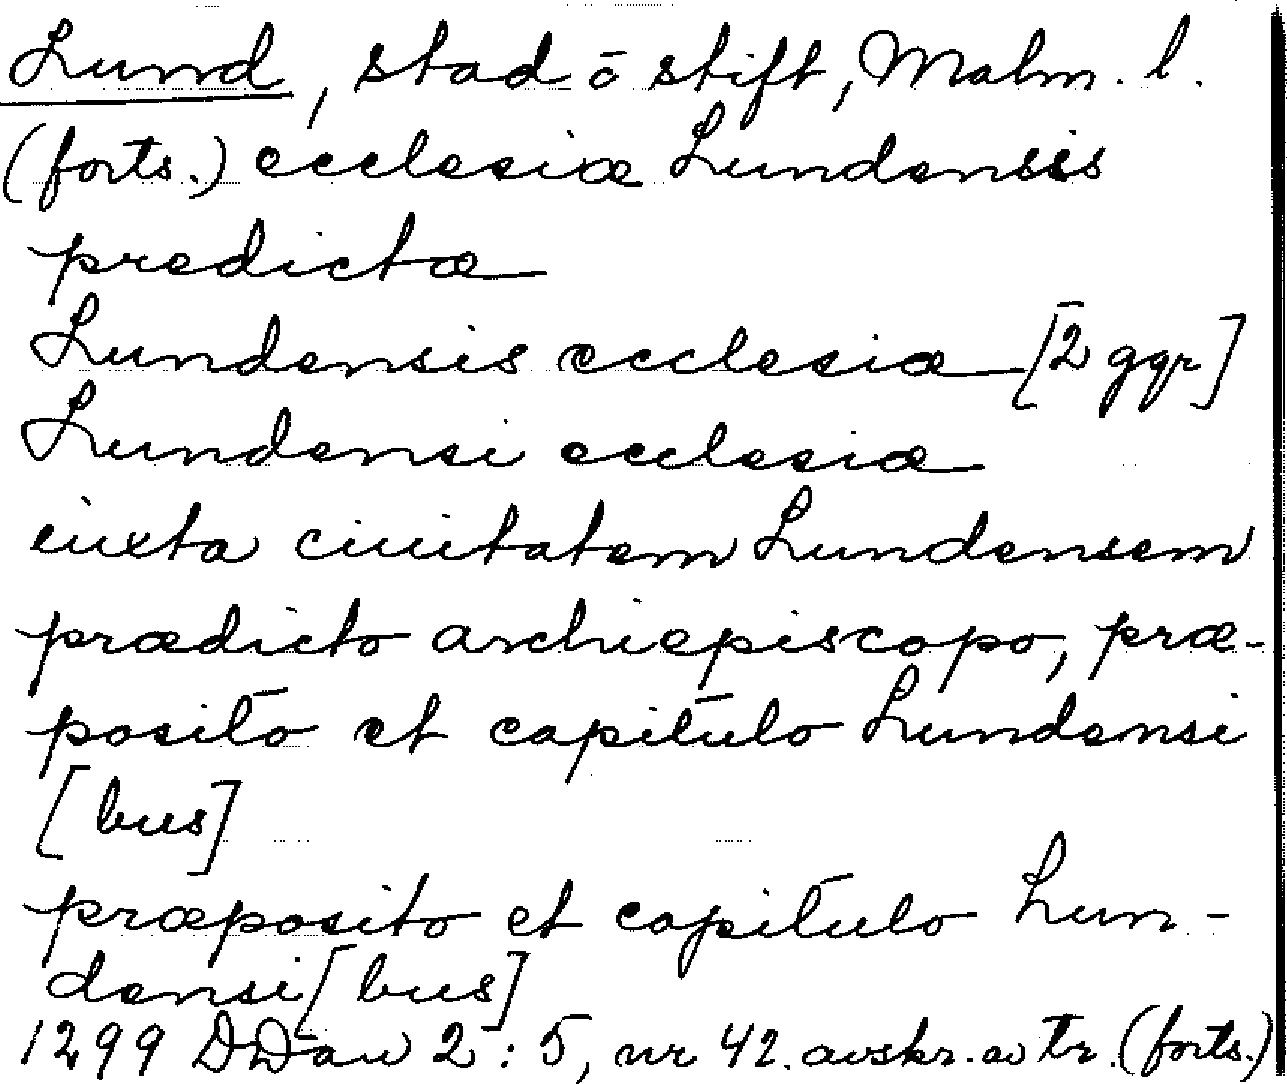 Lund, stad ō stift, Malm. l.
(forts.) ecclesiæ Lundensis
predictæ
Lundensis ecclesiæ [2 ggr]
Lundensi ecclesiæ
iuxta ciuitatem Lundensem
prædicto archiepiscopo, præ-
posito et capitulo Lundensi
[bus]
præposito et capitulo Lun-
densi [bus]
1299 DDan 2:5, nr 42. avskr. av tr. (forts.)